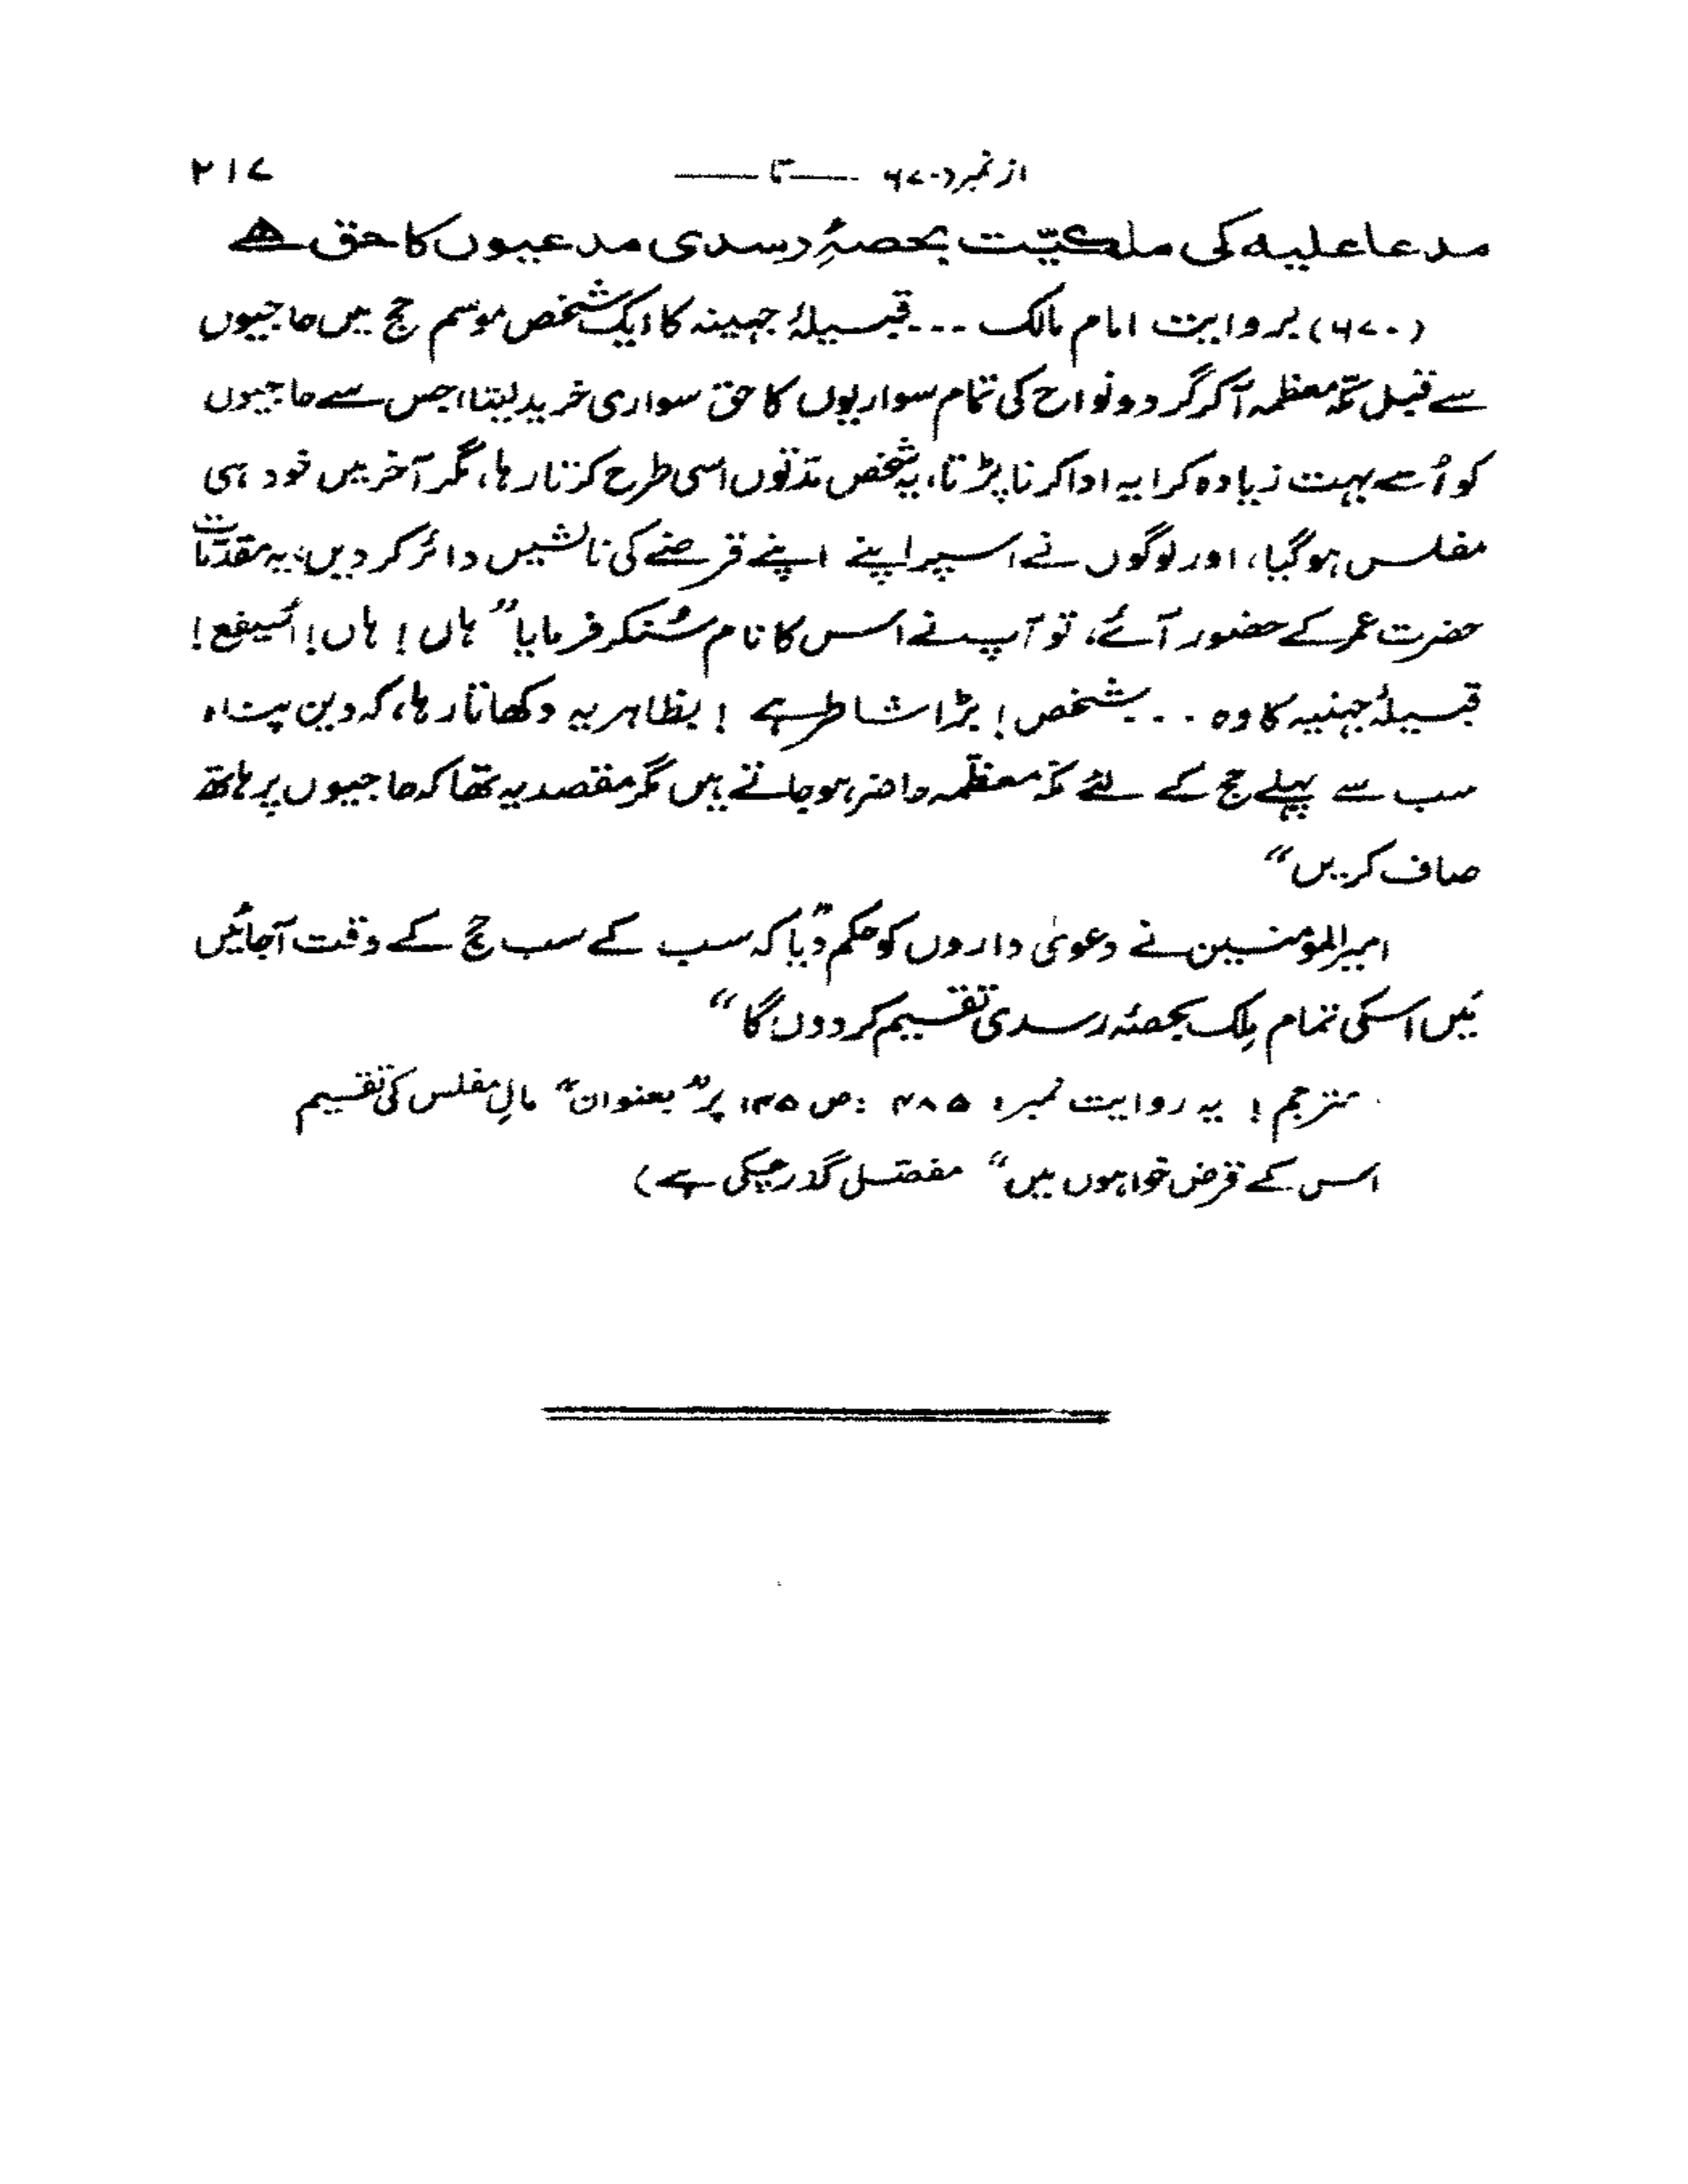 از نمبر (۶۷۰ —— تا —— ۲۱۷
مدعا علیہ کی ملکیّت بحصۂِ رسدی مدعیوں کا حق ہے
(۶۷۰) بروایت امام مالک ... قبیلۂ جہینہ کا ایک شخص موسم حج میں حاجیوں
سے قبل مکّہ معظمہ آکر گرد و نواح کی تمام سواریوں کا حق سواری خرید لیتا، جس سے حاجیوں
کو اُسے بہت زیادہ کرایہ ادا کرنا پڑتا، یہ شخص مدّتوں اسی طرح کرتا رہا، مگر آخر میں خود ہی
مفلس ہوگیا، اور لوگوں نے اسپر اپنے اپنے قرضے کی نالشیں دائر کر دیں، یہ مقدّمات
حضرت عمر کے حضور آئے، تو آپ نے اس کا نام سُنکر فرمایا ”ہاں! ہاں! اُسیفع!
قبیلۂ جہنیہ کا وہ ... شخص! بڑا شاطر ہے! بظاہر یہ دکھاتا رہا، کہ دین پناہ
سب سے پہلے حج کے لئے مکّہ معظّمہ حاضر ہو جاتے ہیں مگر مقصد یہ تھا کہ حاجیوں پر ہاتھ
صاف کریں“
امیر المؤمنین نے دعویٰ داروں کو حکم دیا ”کہ سب کے سب حج کے وقت آجائیں
مَیں اسکی تمام مِلک بحصئہ رسدی تقسیم کر دوں گا“
مترجم! یہ روایت نمبر: ۴۸۵ :ص ۱۴۵ پر ”بعنوان“ مالِ مفلس کی تقسیم
اس کے قرض خواہوں میں“ مفصّل گذر چکی ہے)